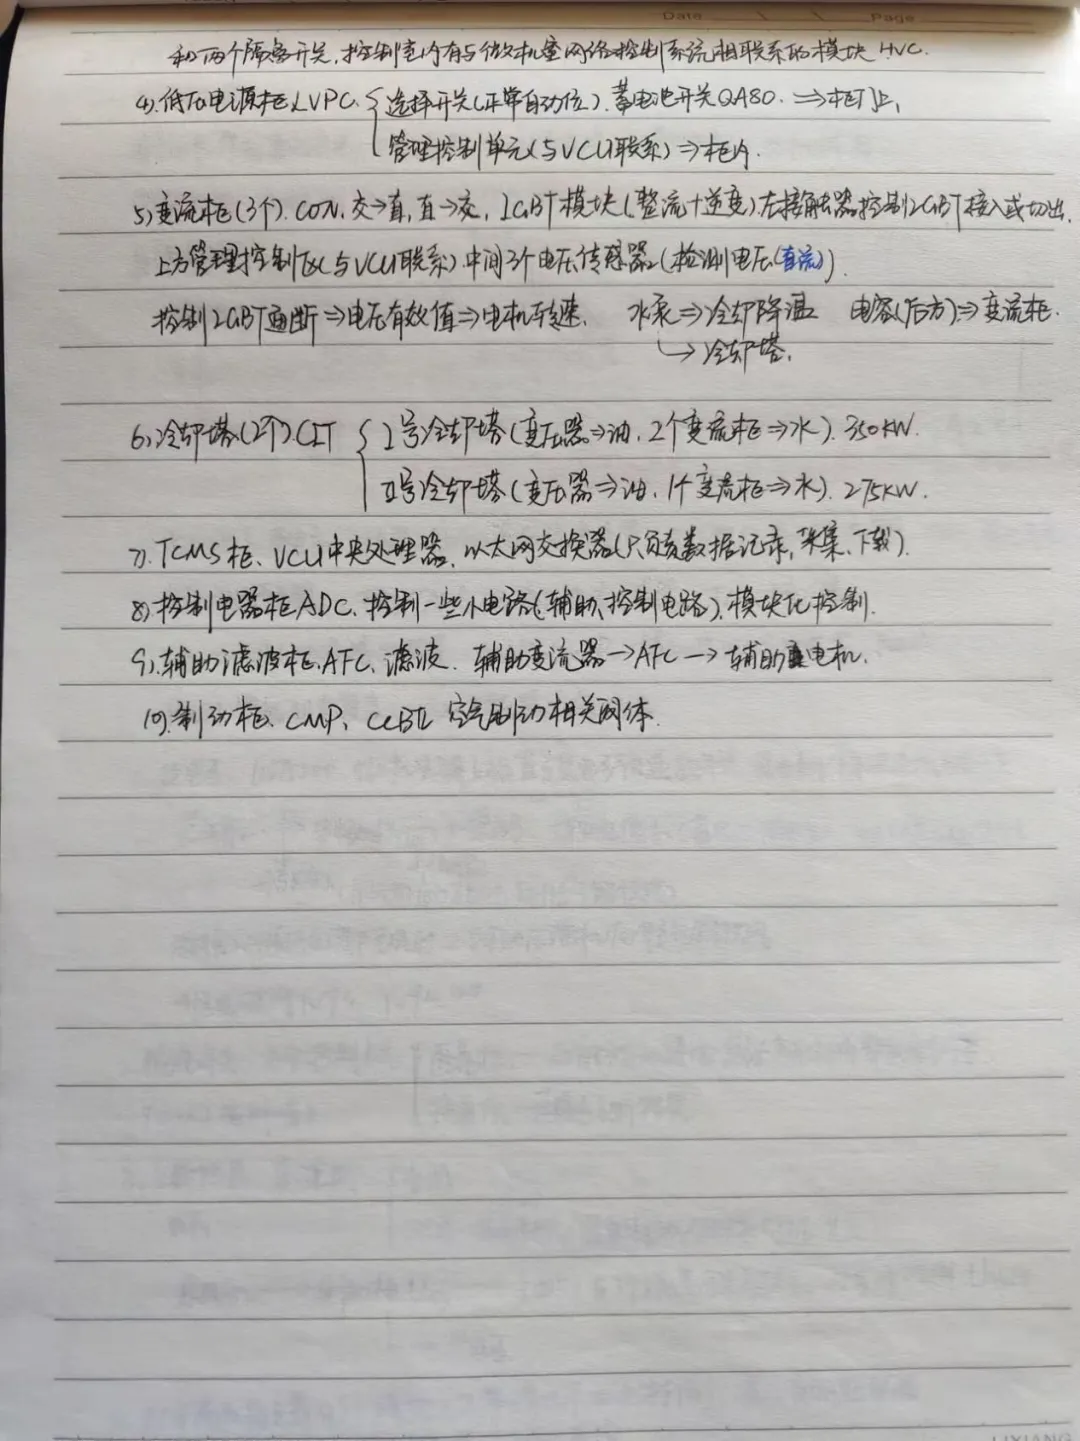 Date \ \ Page
和两个隔离开关,控制室内有与微机室网络控制系统相联系的模块 HVC.
4).低压电源柜LVPC. { 选择开关(正常自动位).蓄电池开关QA80. ⇒柜门上,
管理控制单元(与VCU联系)⇒柜内.
5)变流柜(3个).CON.交→直,直→交,IGBT模块(整流+逆变).左接触器控制IGBT接入或切出.
上方管理控制(与VCU联系)中间3个电压传感器(检测电压(直流)).
控制IGBT通断⇒电压有效值⇒电机转速. 水泵⇒冷却降温 电容(后方)⇒变流柜.
↳冷却塔.
6)冷却塔(2个).CIT { I号冷却塔(变压器⇒油,2个变流柜⇒水).350KW.
II号冷却塔(变压器⇒油,1个变流柜⇒水).275KW.
7).TCMS柜、VCU中央处理器.以太网交换器(只负责数据记录,采集、下载).
8)控制电器柜ADC.控制一些小电路(辅助、控制电路).模块化控制.
9).辅助滤波柜.AFC.滤波. 辅助变流器→AFC→辅助电机.
10).制动柜、CMP、CCBII 空气制动相关阀体.
LIXIANG